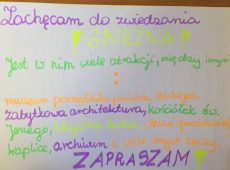 Zachęcam do zwiedzania
! GNIEZNA !
Jest w nim wiele atrakcji, między innymi
:
muzeum początków państwa
zabytkowa architektura, kościółek św.
Jerzego,
kaplice, archiwum i wiele innych
ZAPRASZAM!